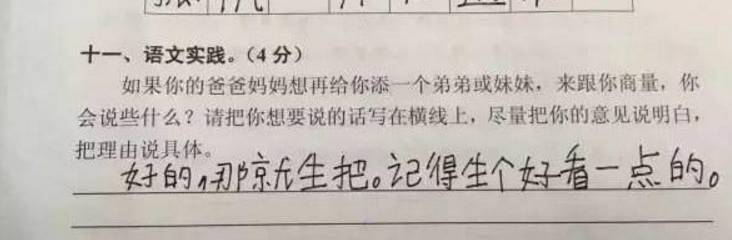 十一、语文实践。（4分）
如果你的爸爸妈妈想再给你添一个弟弟或妹妹，来跟你商量，你
会说些什么？请把你想要说的话写在横线上，尽量把你的意见说明白，
把理由说具体。
好的，那就生把。记得生个好看一点的。